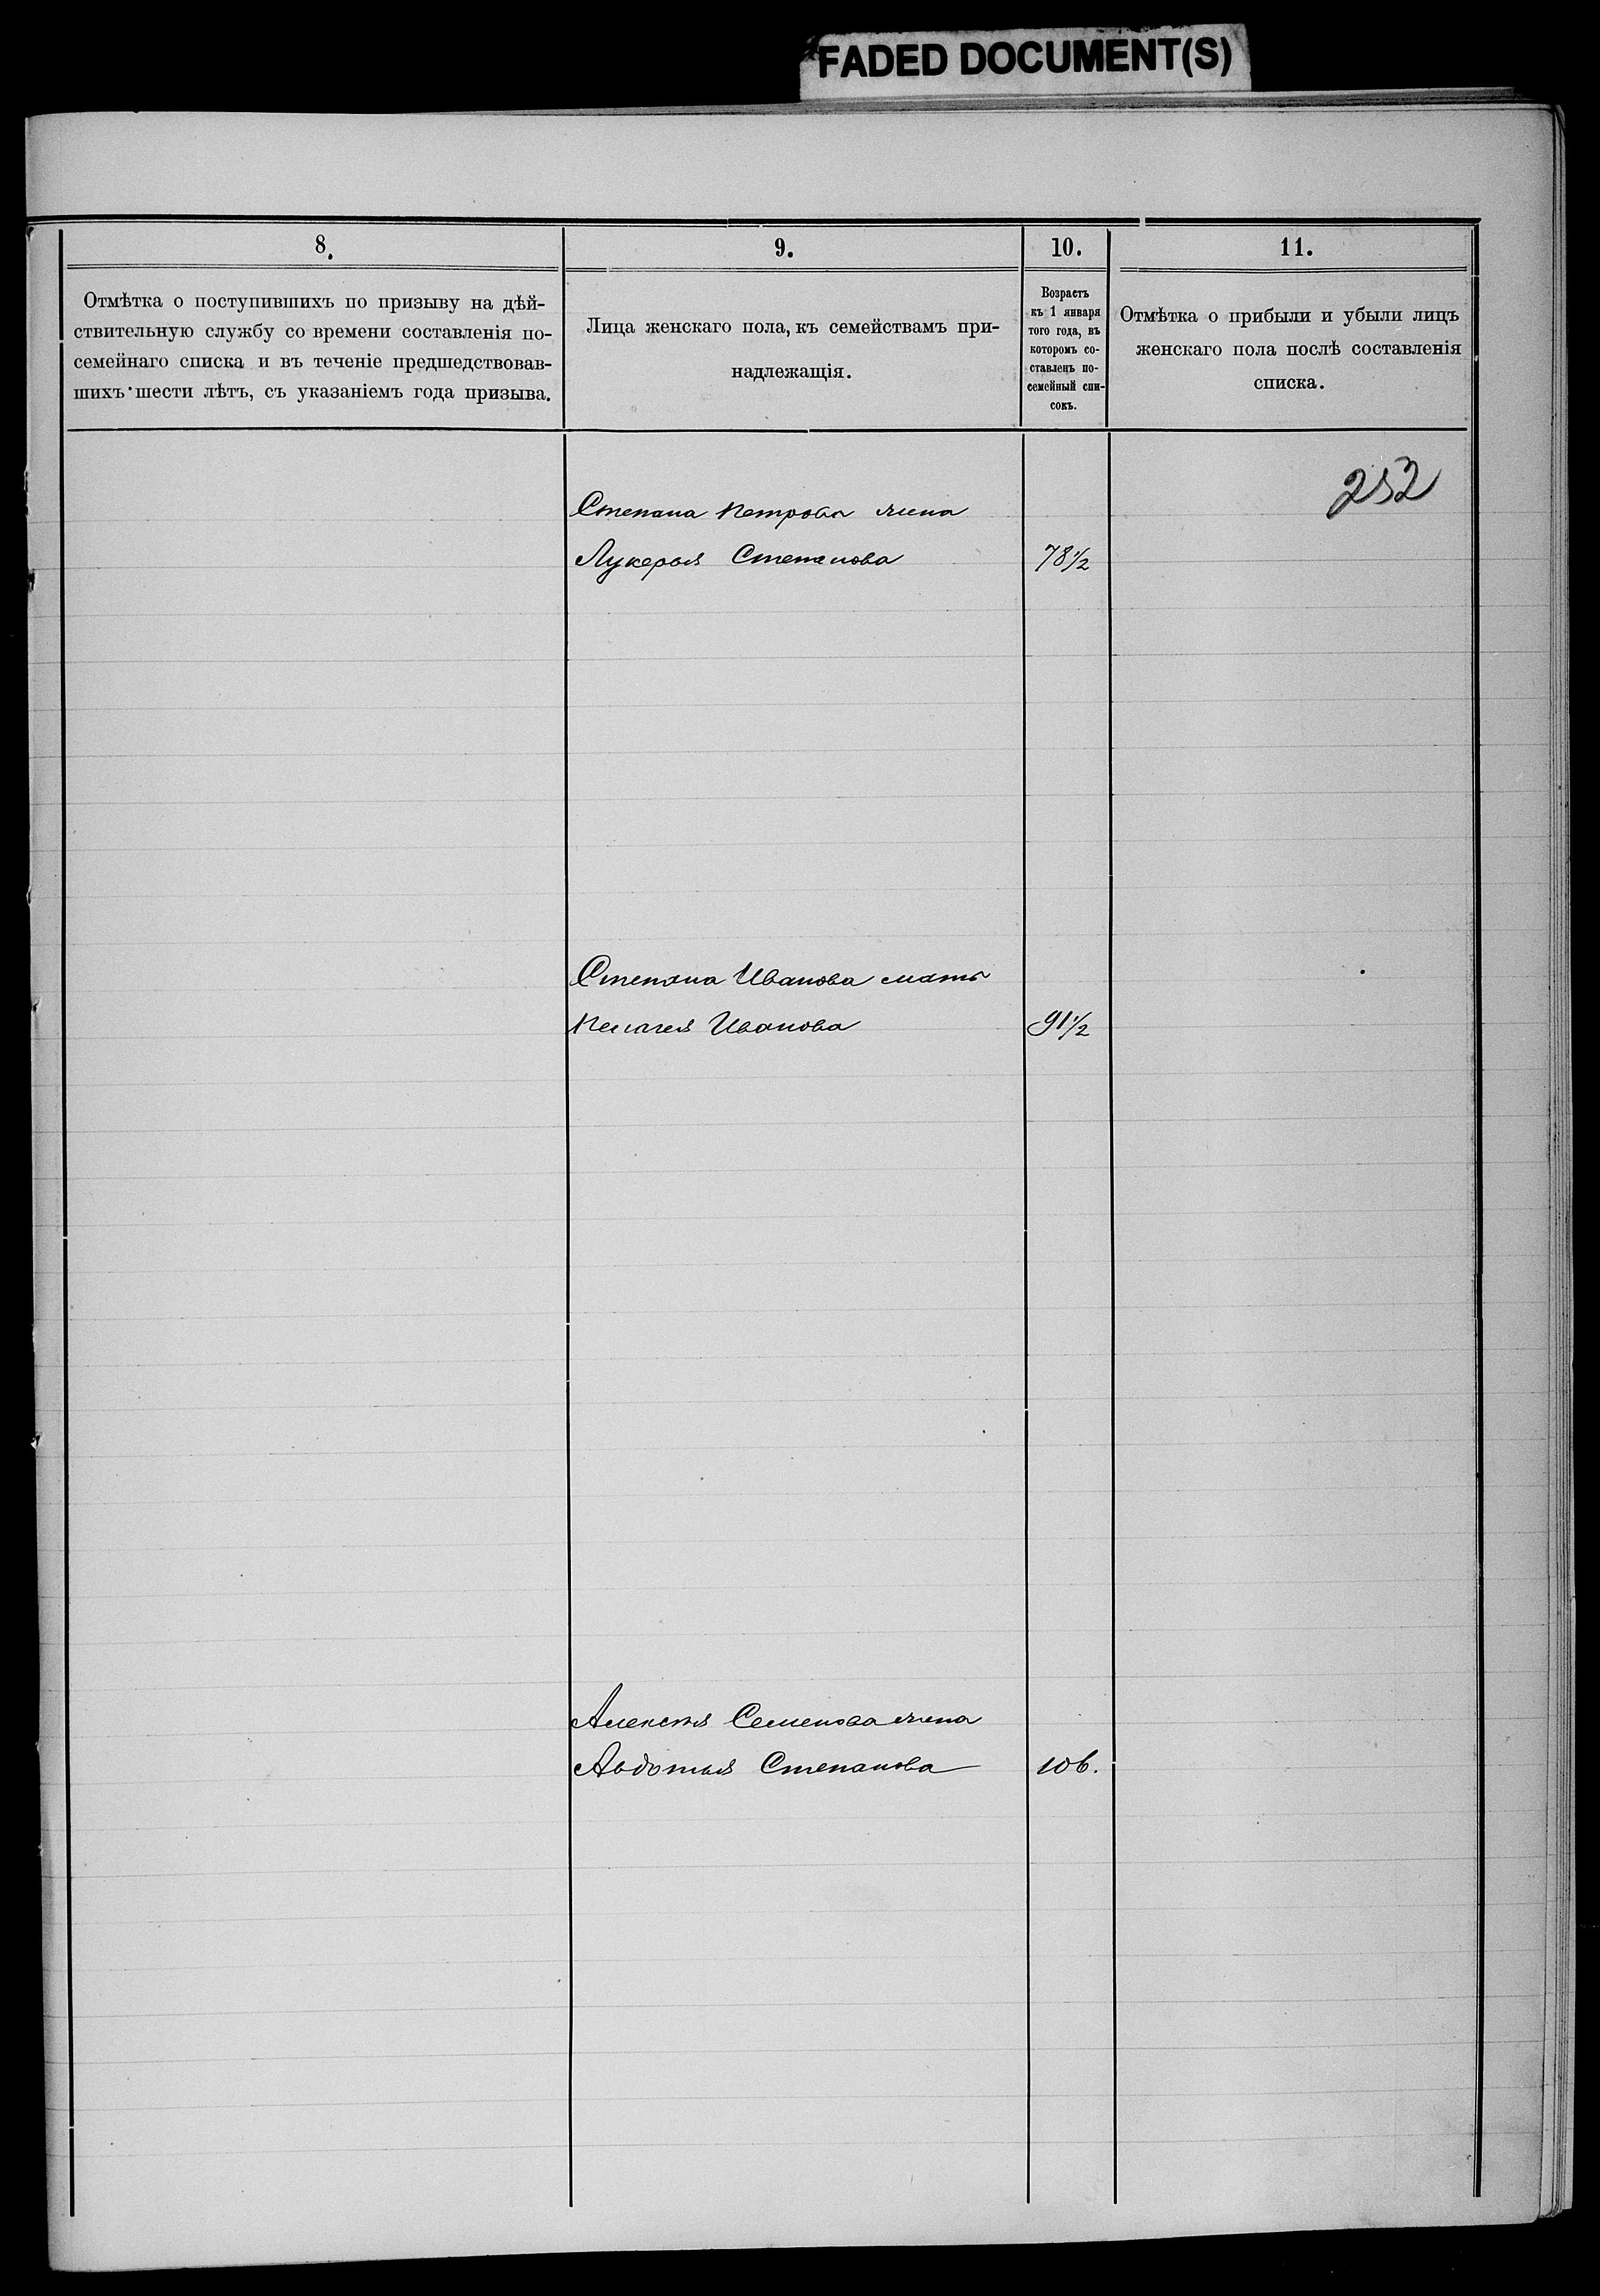 FADED DOCUMENT(S)
8.
Отмѣтка о поступившихъ по призыву на дѣй-
ствительную службу со времени составленія по-
семейнаго списка и въ теченіе предшедствовав-
шихъ шести лѣтъ, съ указаніемъ года призыва.
9.
Лица женскаго пола, къ семействамъ при-
надлежащія.
10.
Возрастъ
къ 1 января
того года, въ
которомъ со-
ставленъ по-
семейный спи-
сокъ.
11.
Отмѣтка о прибыли и убыли лицъ
женскаго пола послѣ составленія
списка.
252
Степана Петрова жена
Лукерья Степанова 78½
Степана Иванова мать
Пелагея Иванова 91½
Алексѣя Семенова жена
Авдотья Степанова 106.